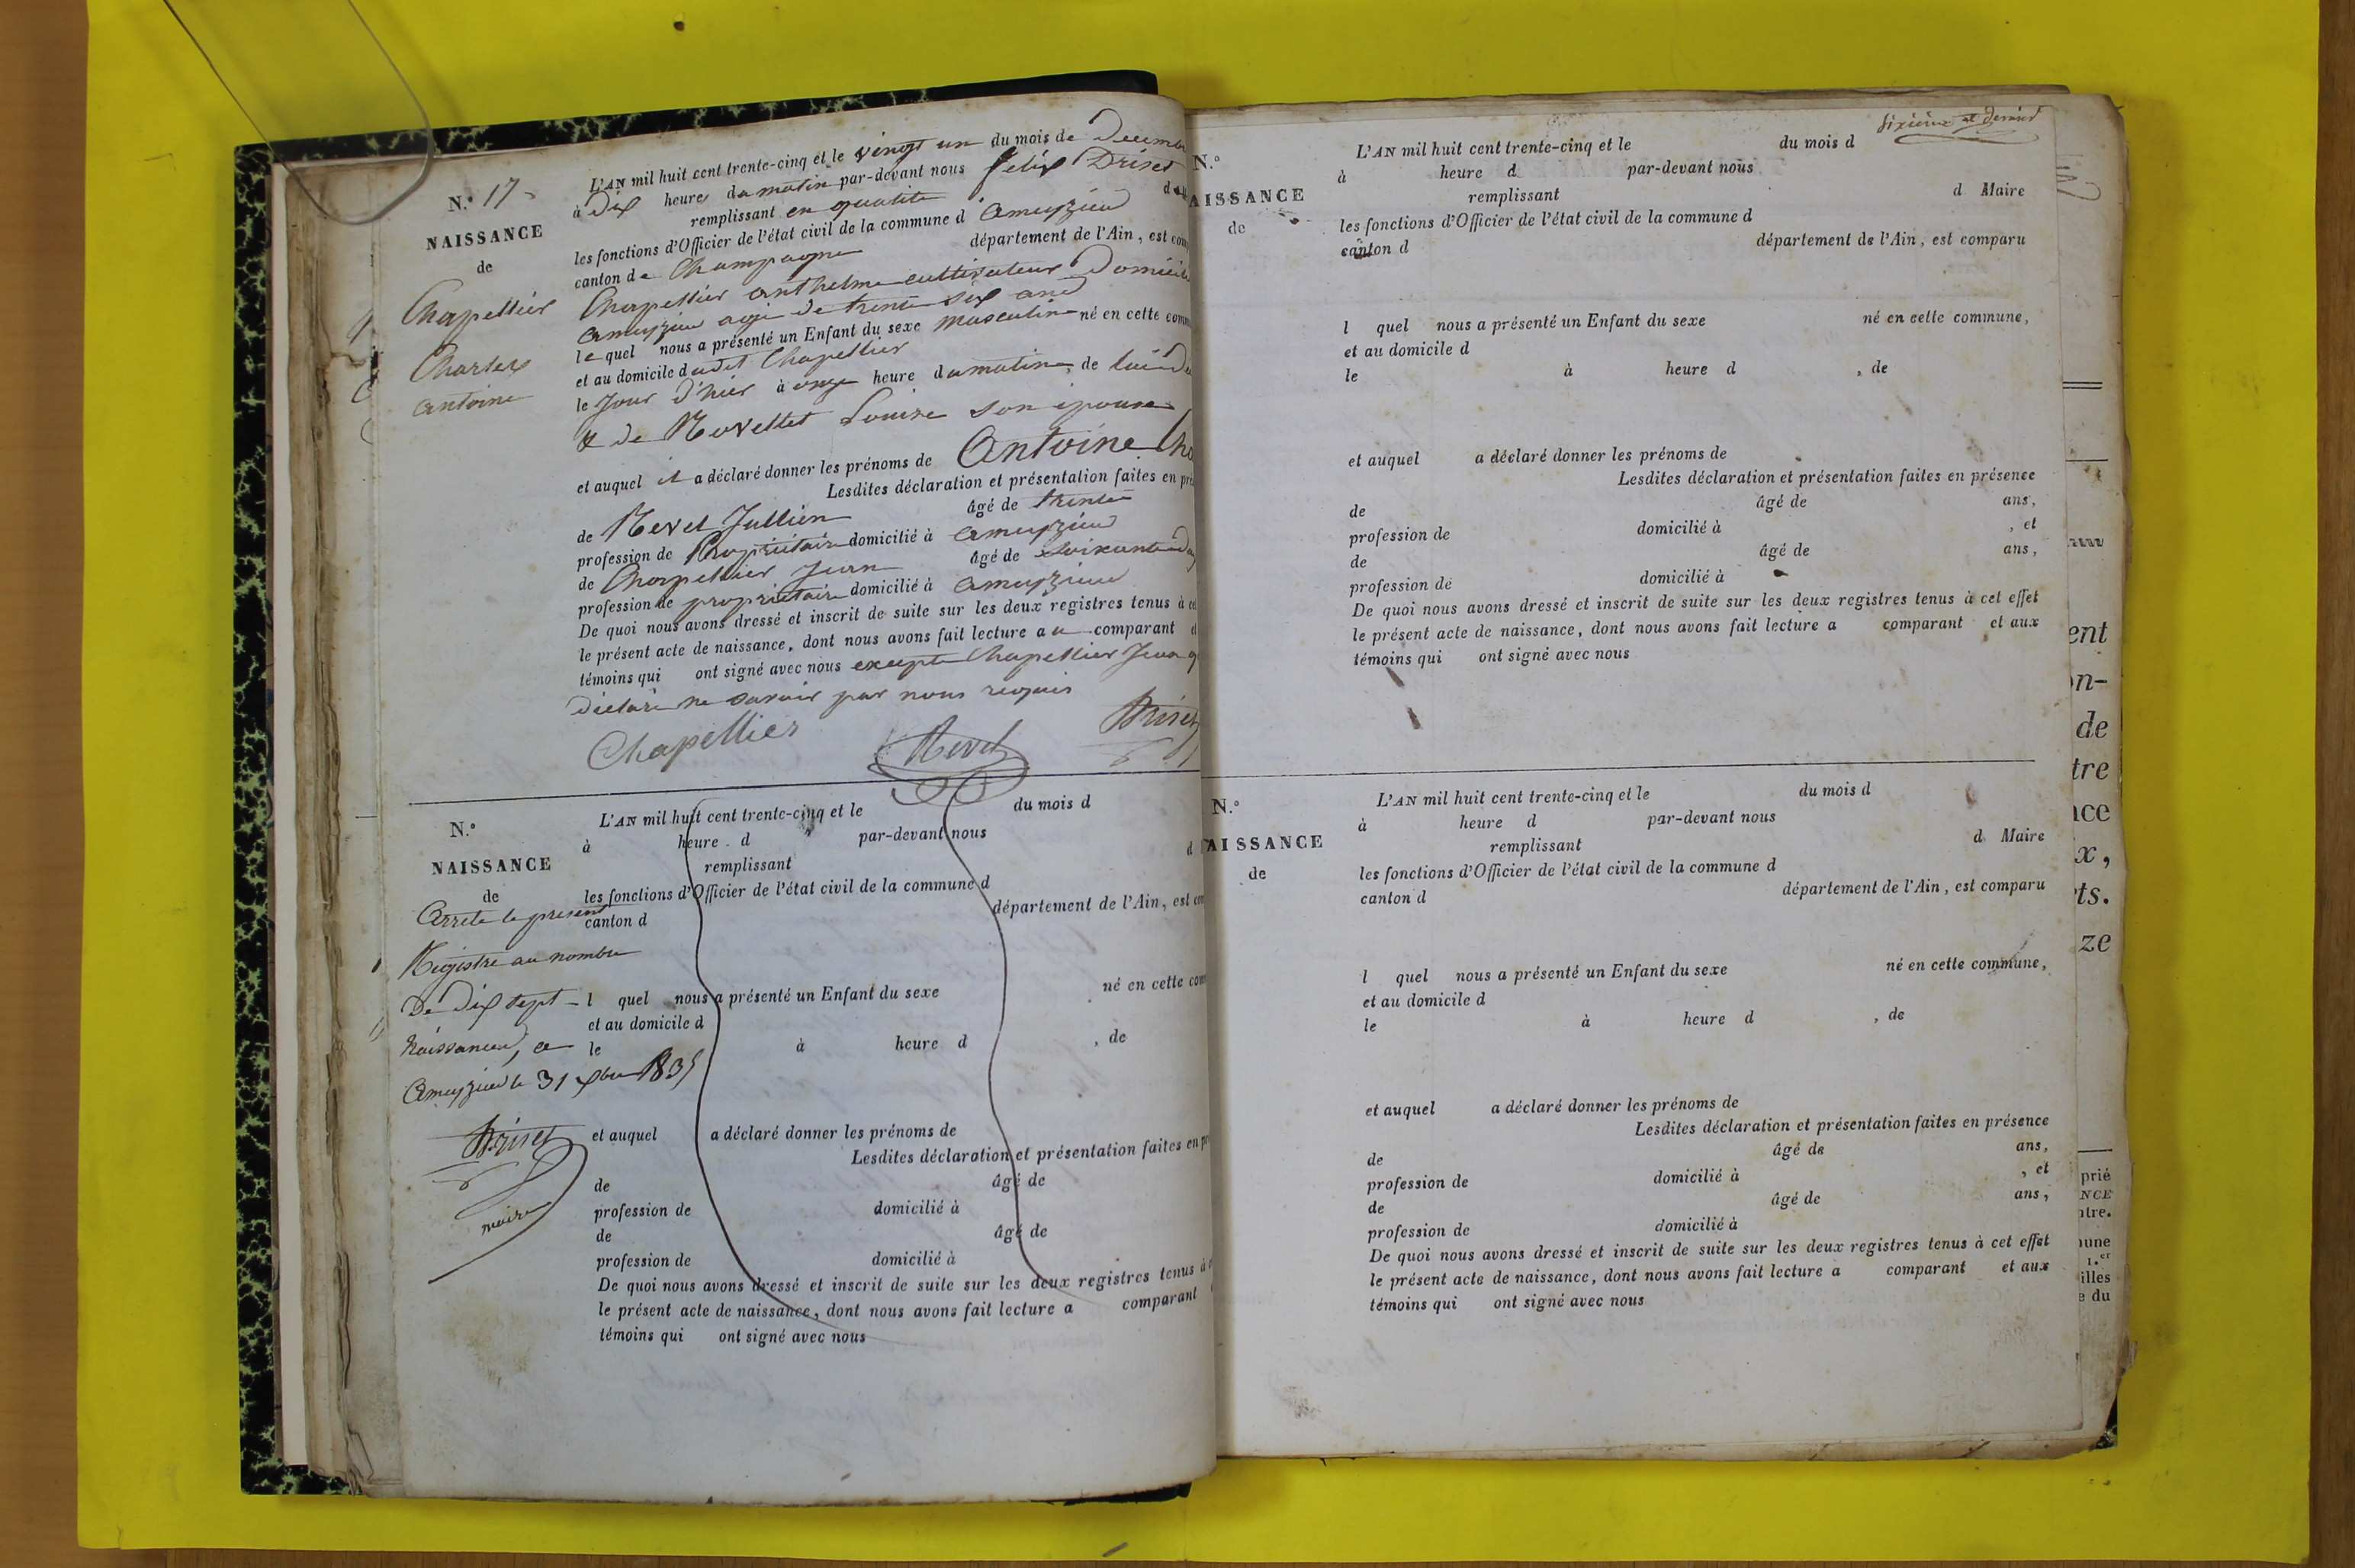 N.° 17
NAISSANCE
de
Chapellier
Charles
antoine
L'AN mil huit cent trente-cinq et le vingt un du mois de Decemb
à Dix heures du matin par-devant nous felix Briset
remplissant en qualité d
les fonctions d'Officier de l'état civil de la commune d'ameyzieu
canton de Champagne département de l'Ain, est com
Chapellier anthelme cultivateur Domicilié
ameyzieu agé de trente six ans
lequel nous a présenté un Enfant du sexe masculin né en cette comm
et au domicile dudit Chapellier
le Jour d'hier à onze heure du matin, de lui
& de Revellet Louise son épouse
et auquel il a déclaré donner les prénoms de Antoine Cha
Lesdites déclaration et présentation faites en pré
de Revel Jullien âgé de trente
profession de Propriétaire domicilié à ameyzieu
de Chapellier Jean âgé de soixante
profession de propriétaire domicilié à ameyzieu
De quoi nous avons dressé et inscrit de suite sur les deux registres tenus à ce
le présent acte de naissance, dont nous avons fait lecture au comparant e
témoins qui ont signé avec nous excepté Chapellier Jean q
déclaré ne savoir par nous requis
Chapellier Revel Briset
N.°
NAISSANCE
de
Arreté le présent
Registre au nombre
de Dix sept
Naissances, a
Ameyzieu le 31 xbre 1835
Briset
maire
L'AN mil huit cent trente-cinq et le du mois d
à heure d par-devant nous
remplissant d
les fonctions d'Officier de l'état civil de la commune d
canton d département de l'Ain, est com
l quel nous a présenté un Enfant du sexe né en cette com
et au domicile d
le à heure d , de
et auquel a déclaré donner les prénoms de
Lesdites déclaration et présentation faites en pr
de âgé de
profession de domicilié à
de âgé de
profession de domicilié à
De quoi nous avons dressé et inscrit de suite sur les deux registres tenus à c
le présent acte de naissance, dont nous avons fait lecture a comparant
témoins qui ont signé avec nous
sixième et dernier
N.°
AISSANCE
de
L'AN mil huit cent trente-cinq et le du mois d
à heure d par-devant nous
remplissant d Maire
les fonctions d'Officier de l'état civil de la commune d
canton d département de l'Ain, est comparu
l quel nous a présenté un Enfant du sexe né en cette commune,
et au domicile d
le à heure d , de
et auquel a déclaré donner les prénoms de
Lesdites déclaration et présentation faites en présence
de âgé de ans,
profession de domicilié à , et
de âgé de ans,
profession de domicilié à
De quoi nous avons dressé et inscrit de suite sur les deux registres tenus à cet effet
le présent acte de naissance, dont nous avons fait lecture a comparant et aux
témoins qui ont signé avec nous
N.°
AISSANCE
de
L'AN mil huit cent trente-cinq et le du mois d
à heure d par-devant nous
remplissant d Maire
les fonctions d'Officier de l'état civil de la commune d
canton d département de l'Ain, est comparu
l quel nous a présenté un Enfant du sexe né en cette commune,
et au domicile d
le à heure d , de
et auquel a déclaré donner les prénoms de
Lesdites déclaration et présentation faites en présence
de âgé de ans,
profession de domicilié à , et
de âgé de ans,
profession de domicilié à
De quoi nous avons dressé et inscrit de suite sur les deux registres tenus à cet effet
le présent acte de naissance, dont nous avons fait lecture a comparant et aux
témoins qui ont signé avec nous
ent
on-
de
tre
nce
x,
ts.
ze
prié
NCE
ntre.
nune
1.er
illes
e du